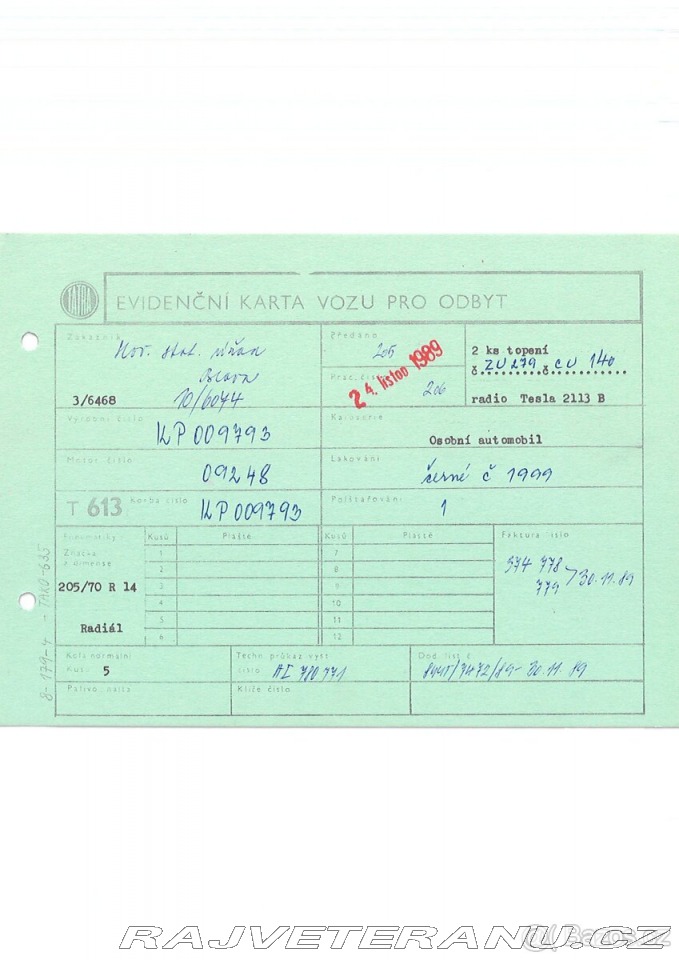 TATRA
EVIDENČNÍ KARTA VOZU PRO ODBYT
Zákazník
3/6468
10/6044
Zředáno
205
Prac. číslo
206
24. listop 1989
2 ks topení
č. ZU 279 č. CU 140
radio Tesla 2113 B
Výrobní číslo
KP 009793
Karoserie
Osobní automobil
Motor číslo
09248
Lakování
černé č 1999
T 613
Korba číslo
KP 009793
Polštařování
1
Pneumatiky
Značka
a dimense
205/70 R 14
Radiál
Kusů
Pláště
1
2
3
4
5
6
Kusů
Pláště
7
8
9
10
11
12
Faktura číslo
374 778
779
30.11.89
Kola normální
Kusů 5
Techn. průkaz vyst.
číslo AI 780771
Dod. list č.
/7472/89 - 30.11.89
Palivo
Klíče číslo
8-179-4 - TAKO-635
RAJVETERANU.CZ
Bazos.cz